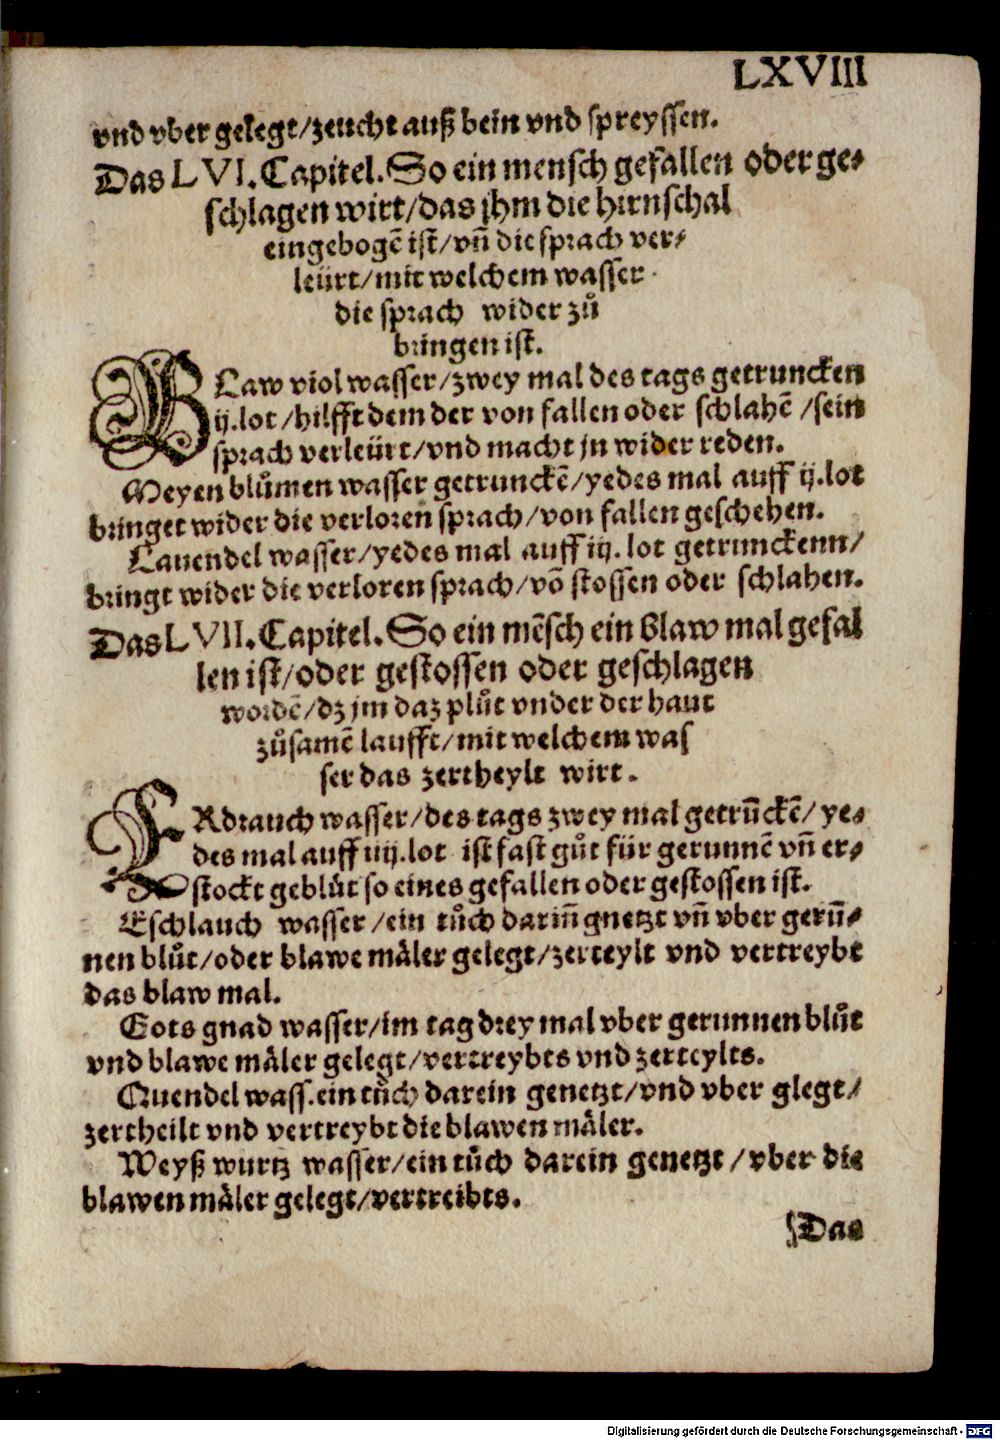 LXVIII
vnd vber gelegt/zeucht auß bein vnd spreyssen.
Das LVI. Capitel. So ein mensch gefallen oder ge-
schlagen wirt/das jhm die hirnschal
eingebogē ist/vn̄ die sprach ver-
leürt/mit welchem wasser
die sprach wider zů
bringen ist.
BLaw viol wasser/zwey mal des tags getruncken
ij.lot/hilfft dem der von fallen oder schlahē/sein
sprach verleürt/vnd macht jn wider reden.
Meyen blůmen wasser getrunckē/yedes mal auff ij.lot
bringet wider die verloren sprach/von fallen geschehen.
Lauendel wasser/yedes mal auff iij.lot getrunckenn/
bringt wider die verloren sprach/vō stossen oder schlahen.
Das LVII. Capitel. So ein mēsch ein blaw mal gefal
len ist/oder gestossen oder geschlagen
wordē/dz jm daz plůt vnder der haut
zůsamē laufft/mit welchem was
ser das zertheylt wirt.
ERdrauch wasser/des tags zwey mal getrūckē/ye-
des mal auff iiij.lot ist fast gůt für gerunnē vn̄ er-
stockt geblůt so eines gefallen oder gestossen ist.
Eschlauch wasser/ein tůch darin̄ gnetzt vn̄ vber gerun̄-
nen blůt/oder blawe mäler gelegt/zerteylt vnd vertreybt
das blaw mal.
Gots gnad wasser/im tag drey mal vber gerunnen blůt
vnd blawe mäler gelegt/vertreybts vnd zerteylts.
Quendel wass.ein tůch darein genetzt/vnd vber glegt/
zertheilt vnd vertreybt die blawen mäler.
Weyß wurtz wasser/ein tůch darein genetzt/vber die
blawen mäler gelegt/vertreibts.
Das
Digitalisierung gefördert durch die Deutsche Forschungsgemeinschaft - DFG